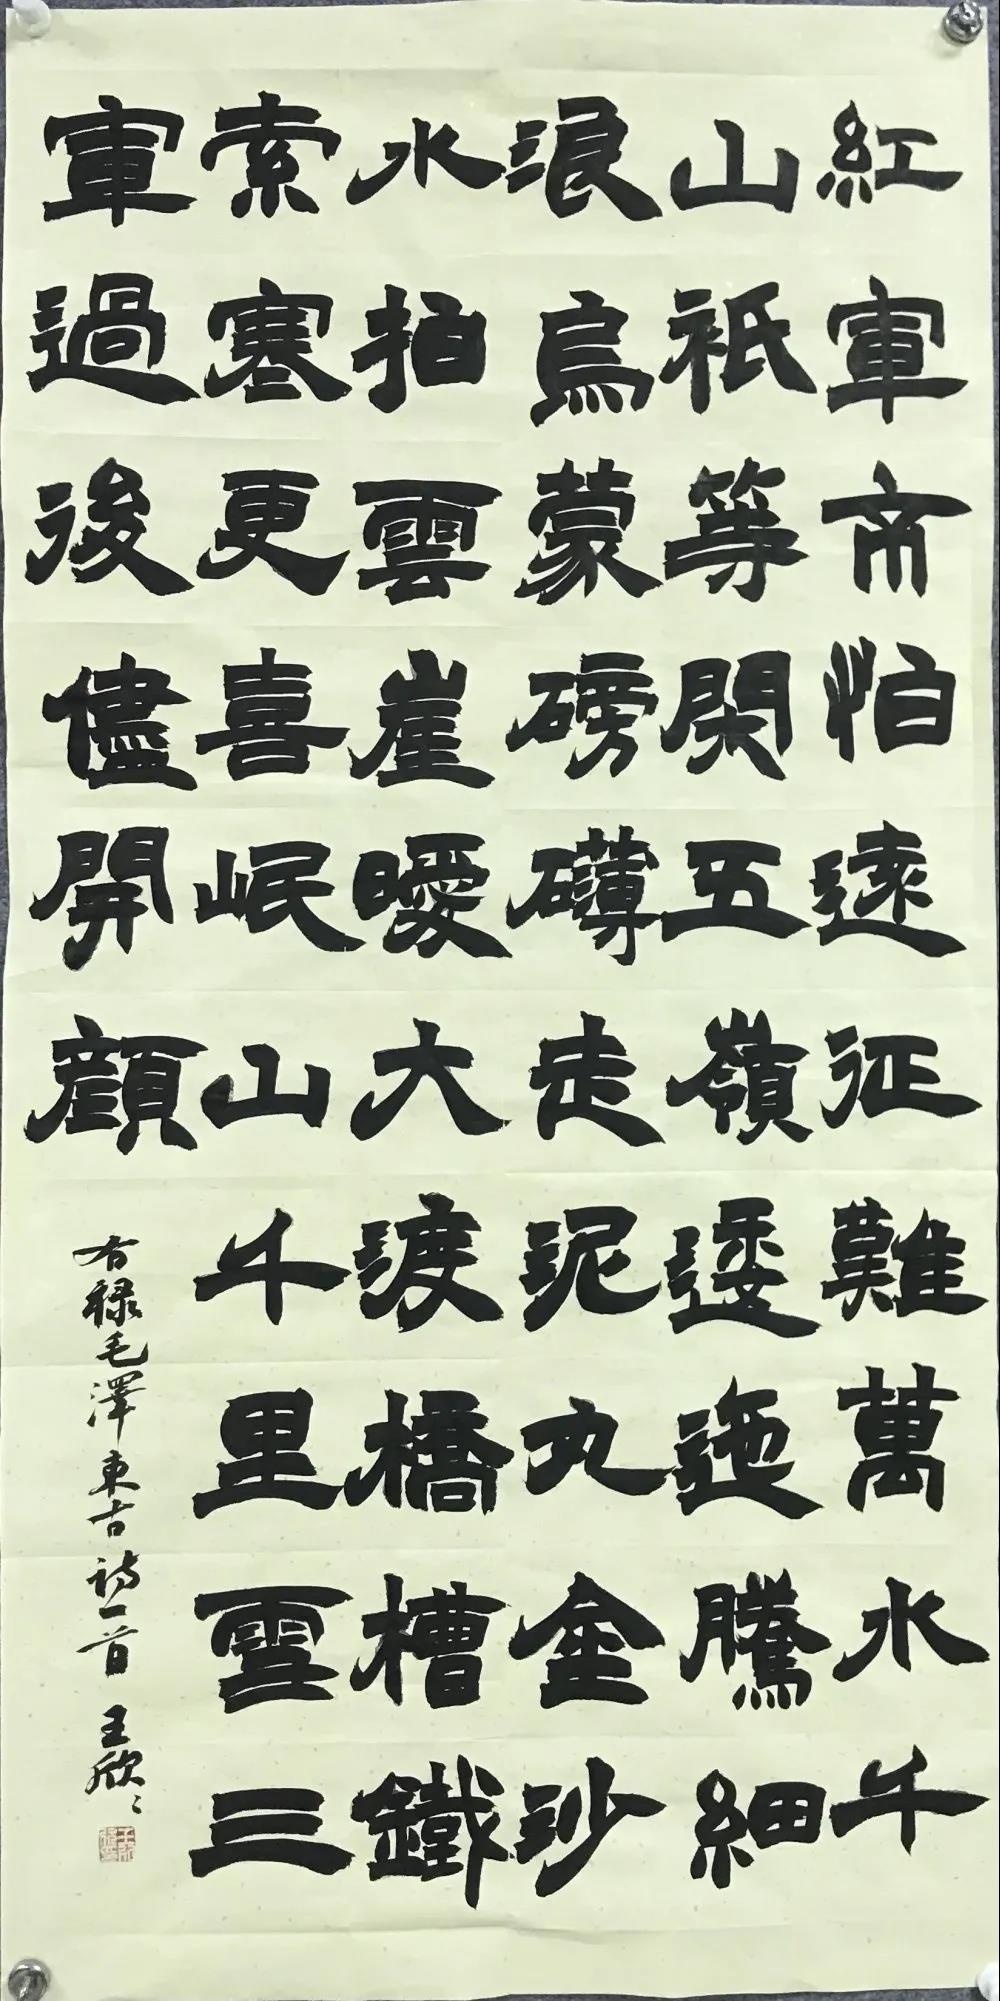 紅軍不怕遠征難萬水千
山祇等閑五嶺逶迤騰細
浪烏蒙磅礴走泥丸金沙
水拍雲崖曖大渡橋槽鐵
索寒更喜岷山千里雪三
軍過後儘開顏
右禄毛澤東古诗一首 王欣